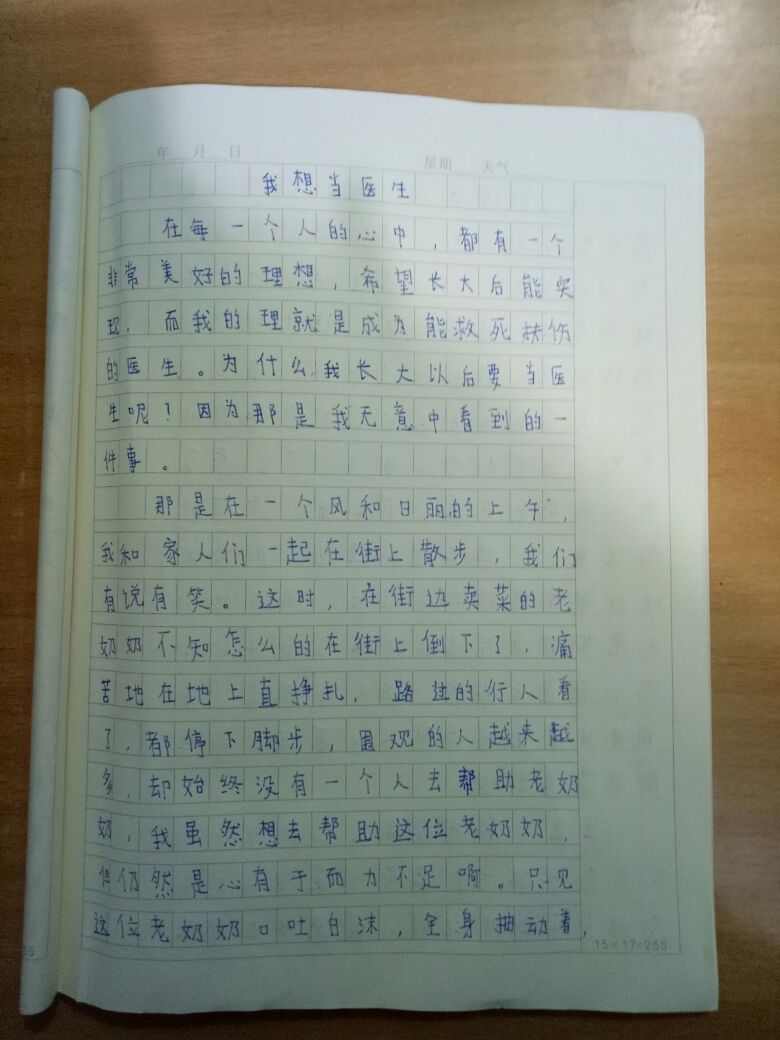 年 月 日 星期 天气
我想当医生
在每一个人的心中，都有一个
非常美好的理想，希望长大后能实
现，而我的理就是成为能救死扶伤
的医生。为什么我长大以后要当医
生呢？因为那是我无意中看到的一
件事。
那是在一个风和日丽的上午，
我和家人们一起在街上散步，我们
有说有笑。这时，在街边卖菜的老
奶奶不知怎么的在街上倒下了，痛
苦地在地上直挣扎，路过的行人看
了，都停下脚步，围观的人越来越
多，却始终没有一个人去帮助老奶
奶，我虽然想去帮助这位老奶奶，
但仍然是心有于而力不足啊。只见
这位老奶奶口吐白沫，全身抽动着，
15×17=255